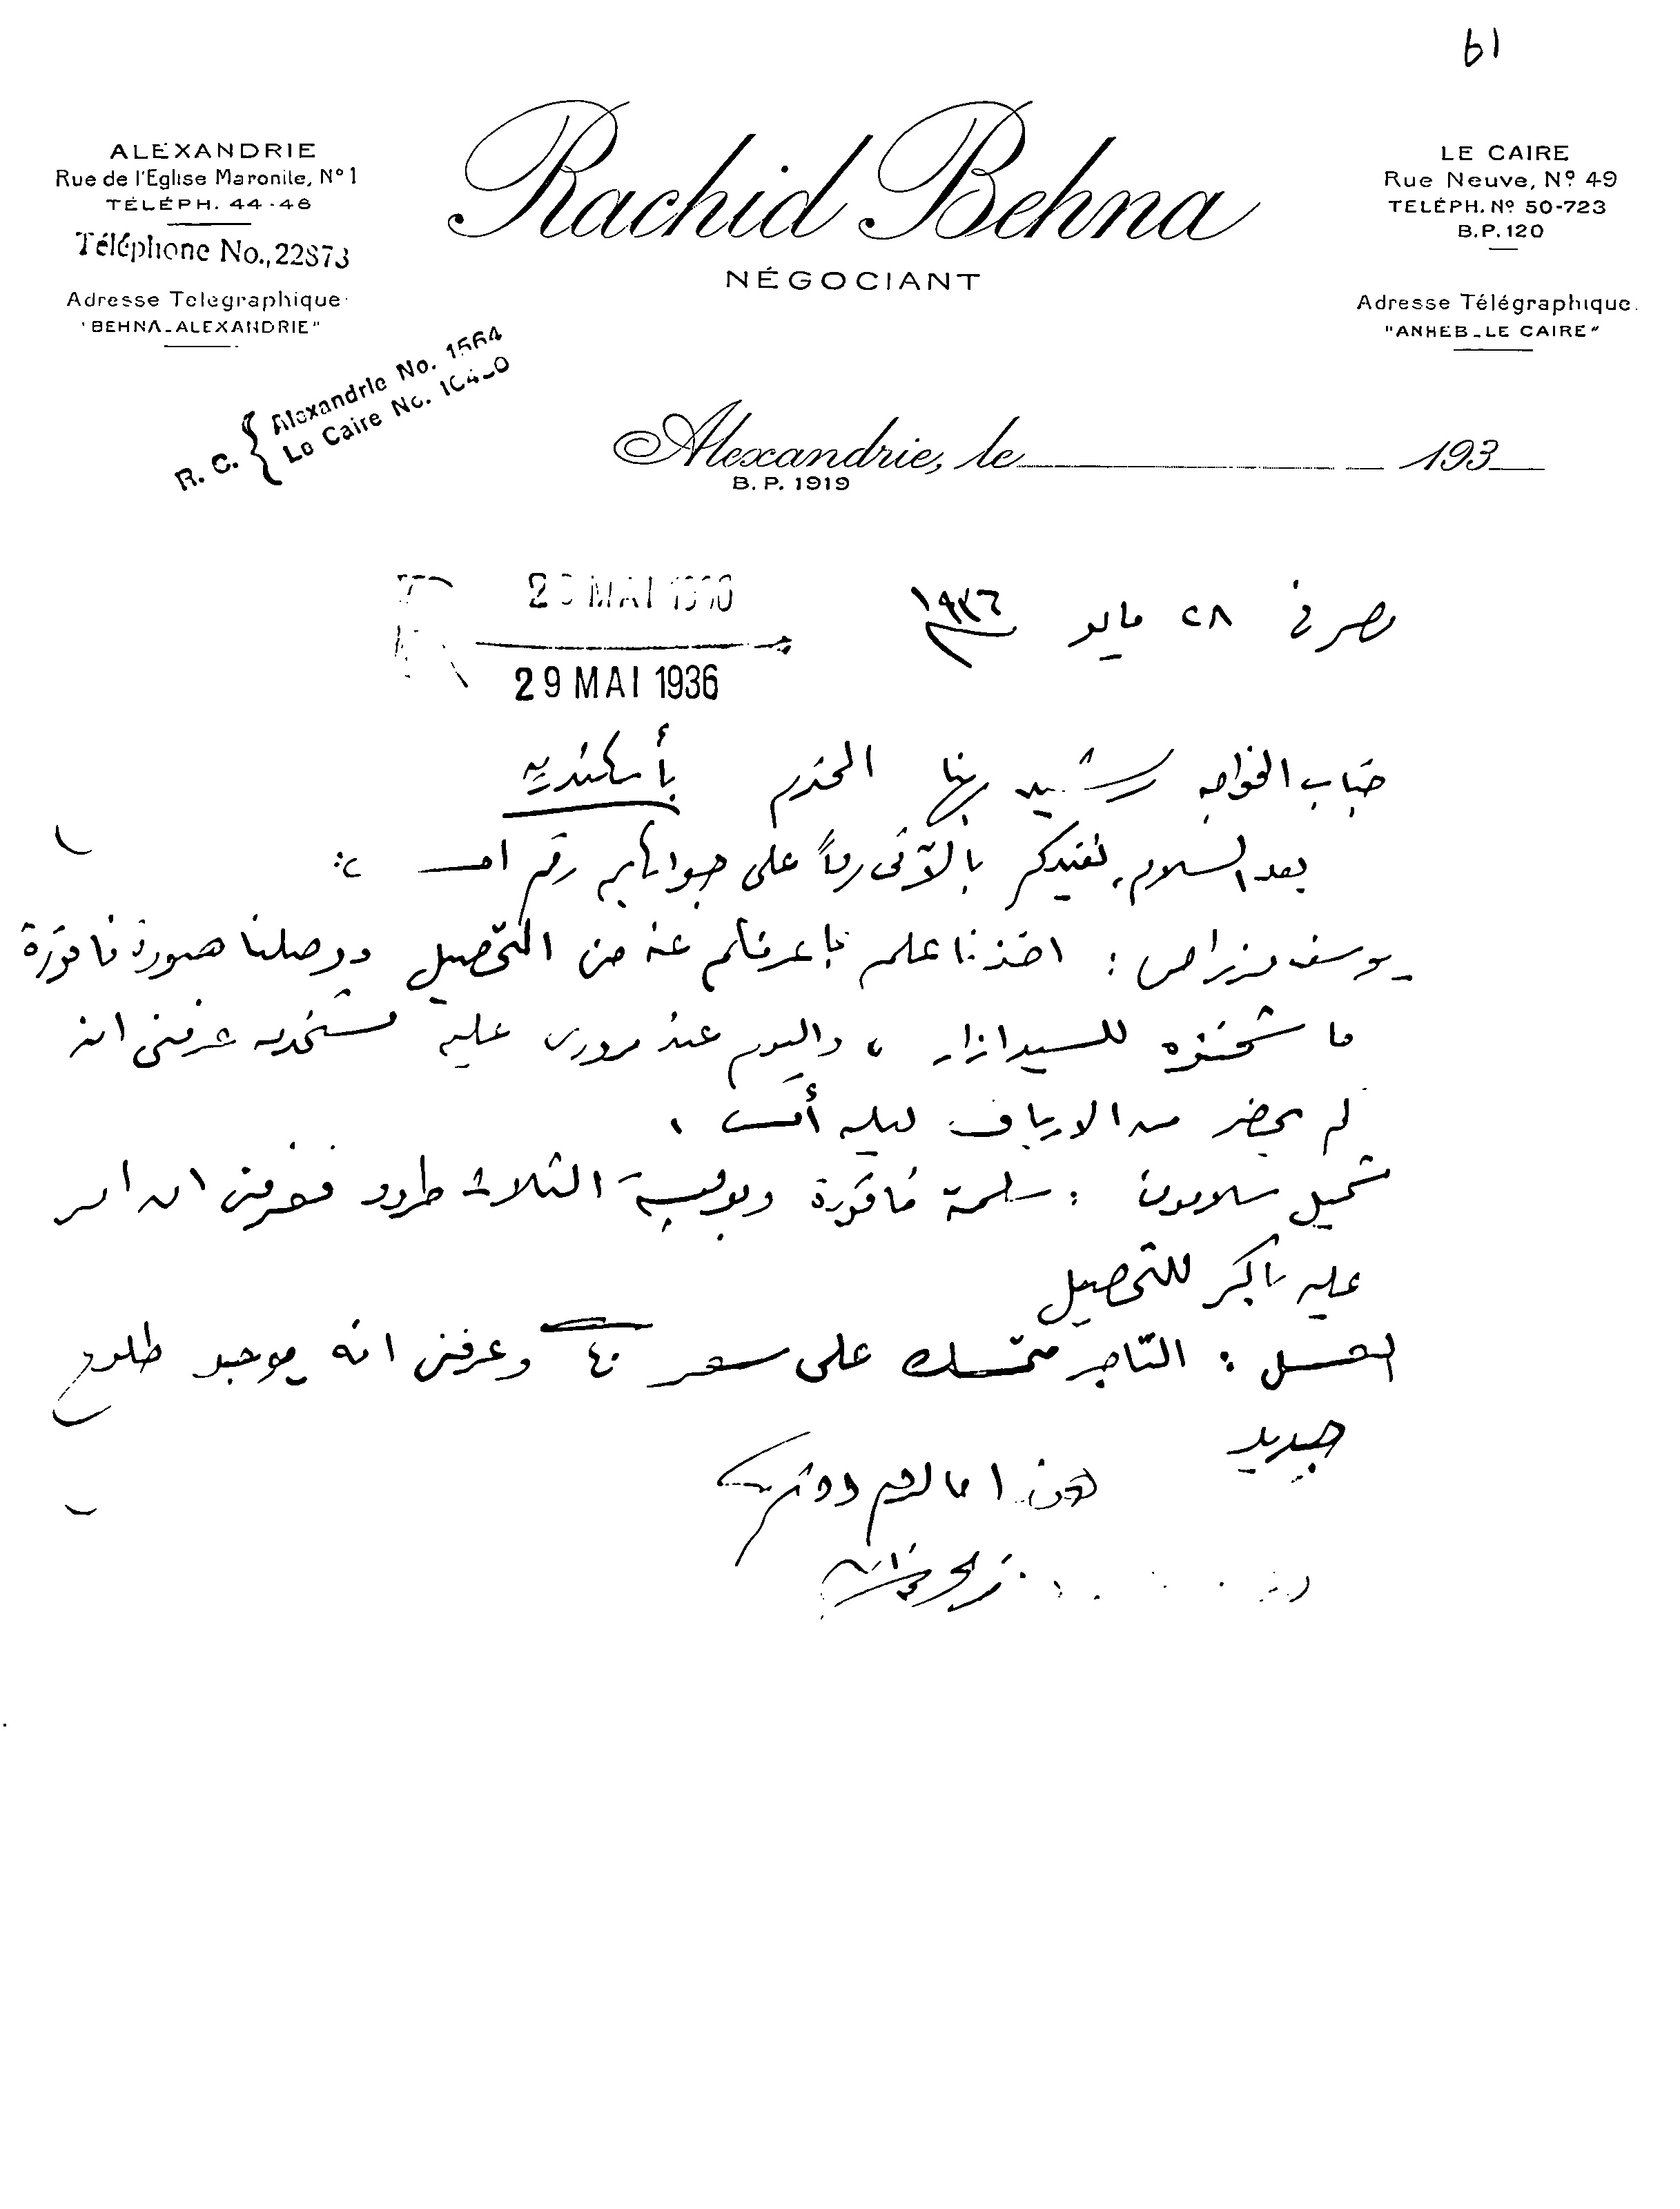 61
ALEXANDRIE
Rue de l'Eglise Maronite, Nº 1
TÉLÉPH. 44-46
Téléphone No., 22873
Adresse Telegraphique
"BEHNA-ALEXANDRIE"
Rachid Behna
NÉGOCIANT
LE CAIRE
Rue Neuve, Nº 49
TELÉPH. Nº 50-723
B.P. 120
Adresse Télégraphique.
"ANHEB-LE CAIRE"
R. C. { Alexandrie No. 1564
Le Caire No.
Alexandrie, le 193
B. P. 1919
MAI
29 MAI 1936
مصر في ٢٨ مايو ١٩٣٦
جناب الخواجه رشيد بهنا المحترم بأسكندريه
بعد السلام، نفيدكم بالآتى رداً على جوابكم رقم امس
يوسف مزراحى : اخذنا علم بما عرفتم عنه من التحصيل ووصلنا صورة فاتورة
ما شحنتوه للسيد ازار ، واليوم عند مرورى عليه مستخدمه عرفنى انه
لم يحضر من الارياف ليلة أمس ،
شميل سلامون : سلمته فاتورة وبوليسة الثلاث طرود فعرفنى ان امر
عليه باكر للتحصيل
العسل : التاجر متمسك على سعر ٤٠ وعرفنى انه يوجد طلوع
جديد
هذا ما لزم ودمتم